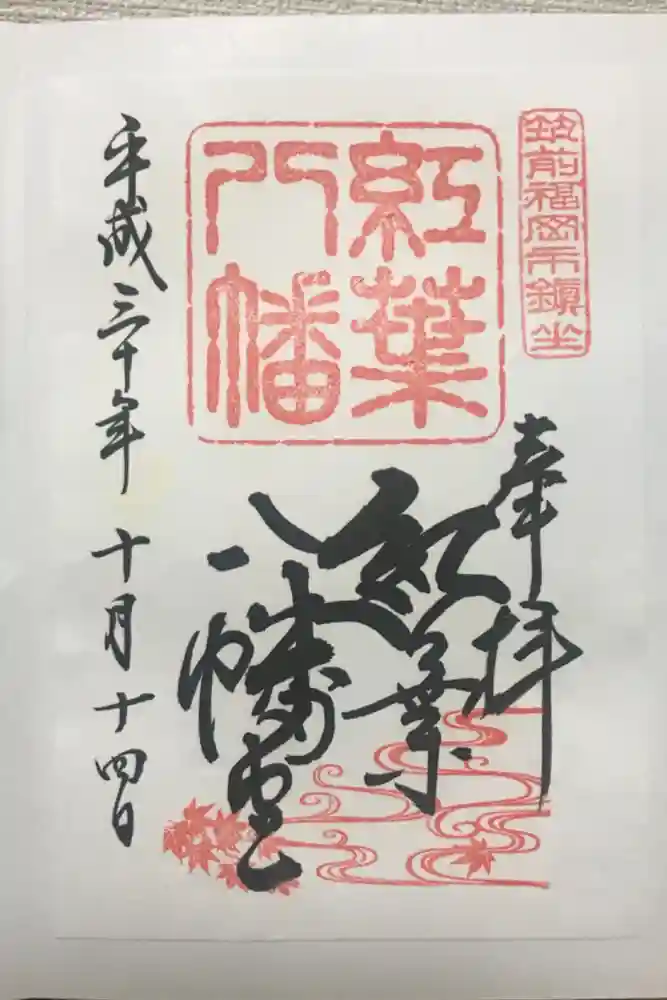 筑前福岡市鎮坐
奉拝
紅葉
八幡
紅葉
八幡宮
平成三十年 十月十四日